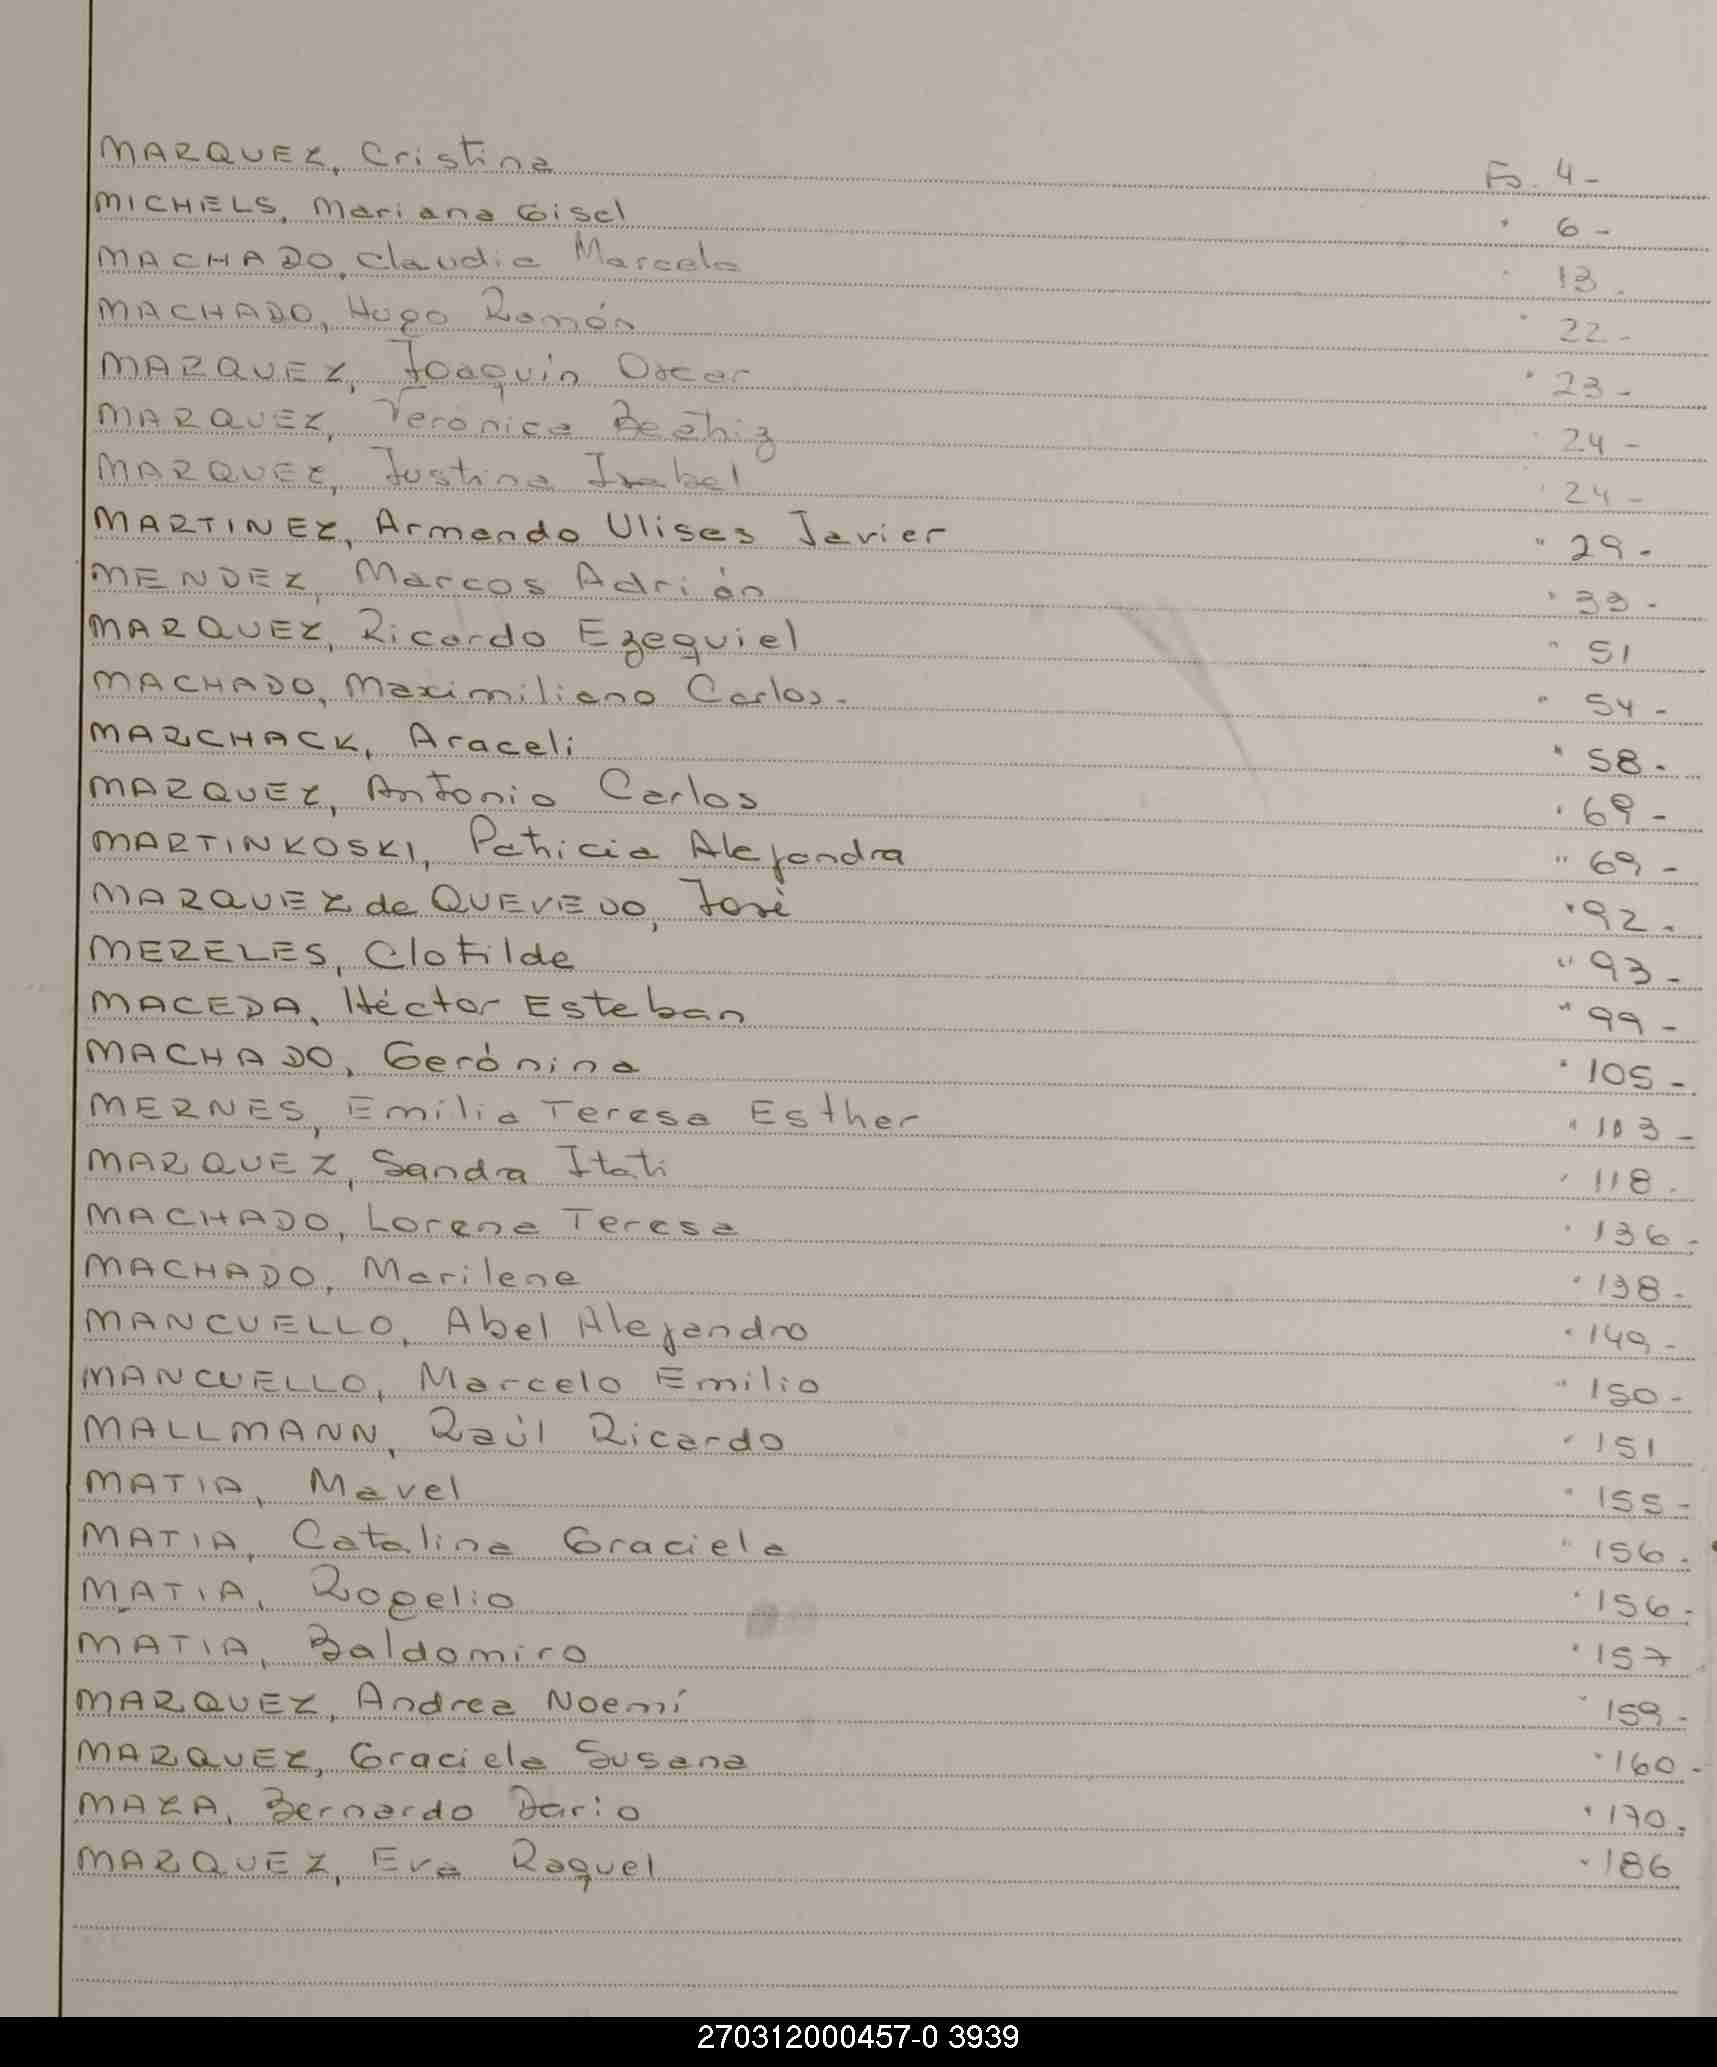 MARQUEZ, Cristina Fo. 4-
MICHELS, Mariana Gisel " 6-
MACHADO, Claudia Marcela " 13.
MACHADO, Hugo Ramón " 22-
MARQUEZ, Joaquín Oscar " 23-
MARQUEZ, Veronica Beatriz " 24-
MARQUEZ, Justina Isabel " 24-
MARTINEZ, Armando Ulises Javier " 29-
MENDEZ, Marcos Adrián " 33-
MARQUEZ, Ricardo Ezequiel " 51
MACHADO, Maximiliano Carlos- " 54-
MARCHACK, Araceli " 58-
MARQUEZ, Antonio Carlos " 69-
MARTINKOSKI, Patricia Alejandra " 69-
MARQUEZ de QUEVEDO, José " 92-
MERELES, Clotilde " 93-
MACEDA, Héctor Esteban " 99-
MACHADO, Gerónina " 105-
MERNES, Emilia Teresa Esther " 113-
MARQUEZ, Sandra Itati " 118-
MACHADO, Lorena Teresa " 136-
MACHADO, Marilene " 138-
MANCUELLO, Abel Alejandro " 149-
MANCUELLO, Marcelo Emilio " 150-
MALLMANN, Raúl Ricardo " 151
MATIA, Mavel " 155-
MATIA, Catalina Graciela " 156-
MATIA, Rogelio " 156-
MATIA, Baldomiro " 157
MARQUEZ, Andrea Noemí " 159-
MARQUEZ, Graciela Susana " 160-
MAZA, Bernardo Dario " 170.
MARQUEZ, Eva Raquel " 186
270312000457-0 3939